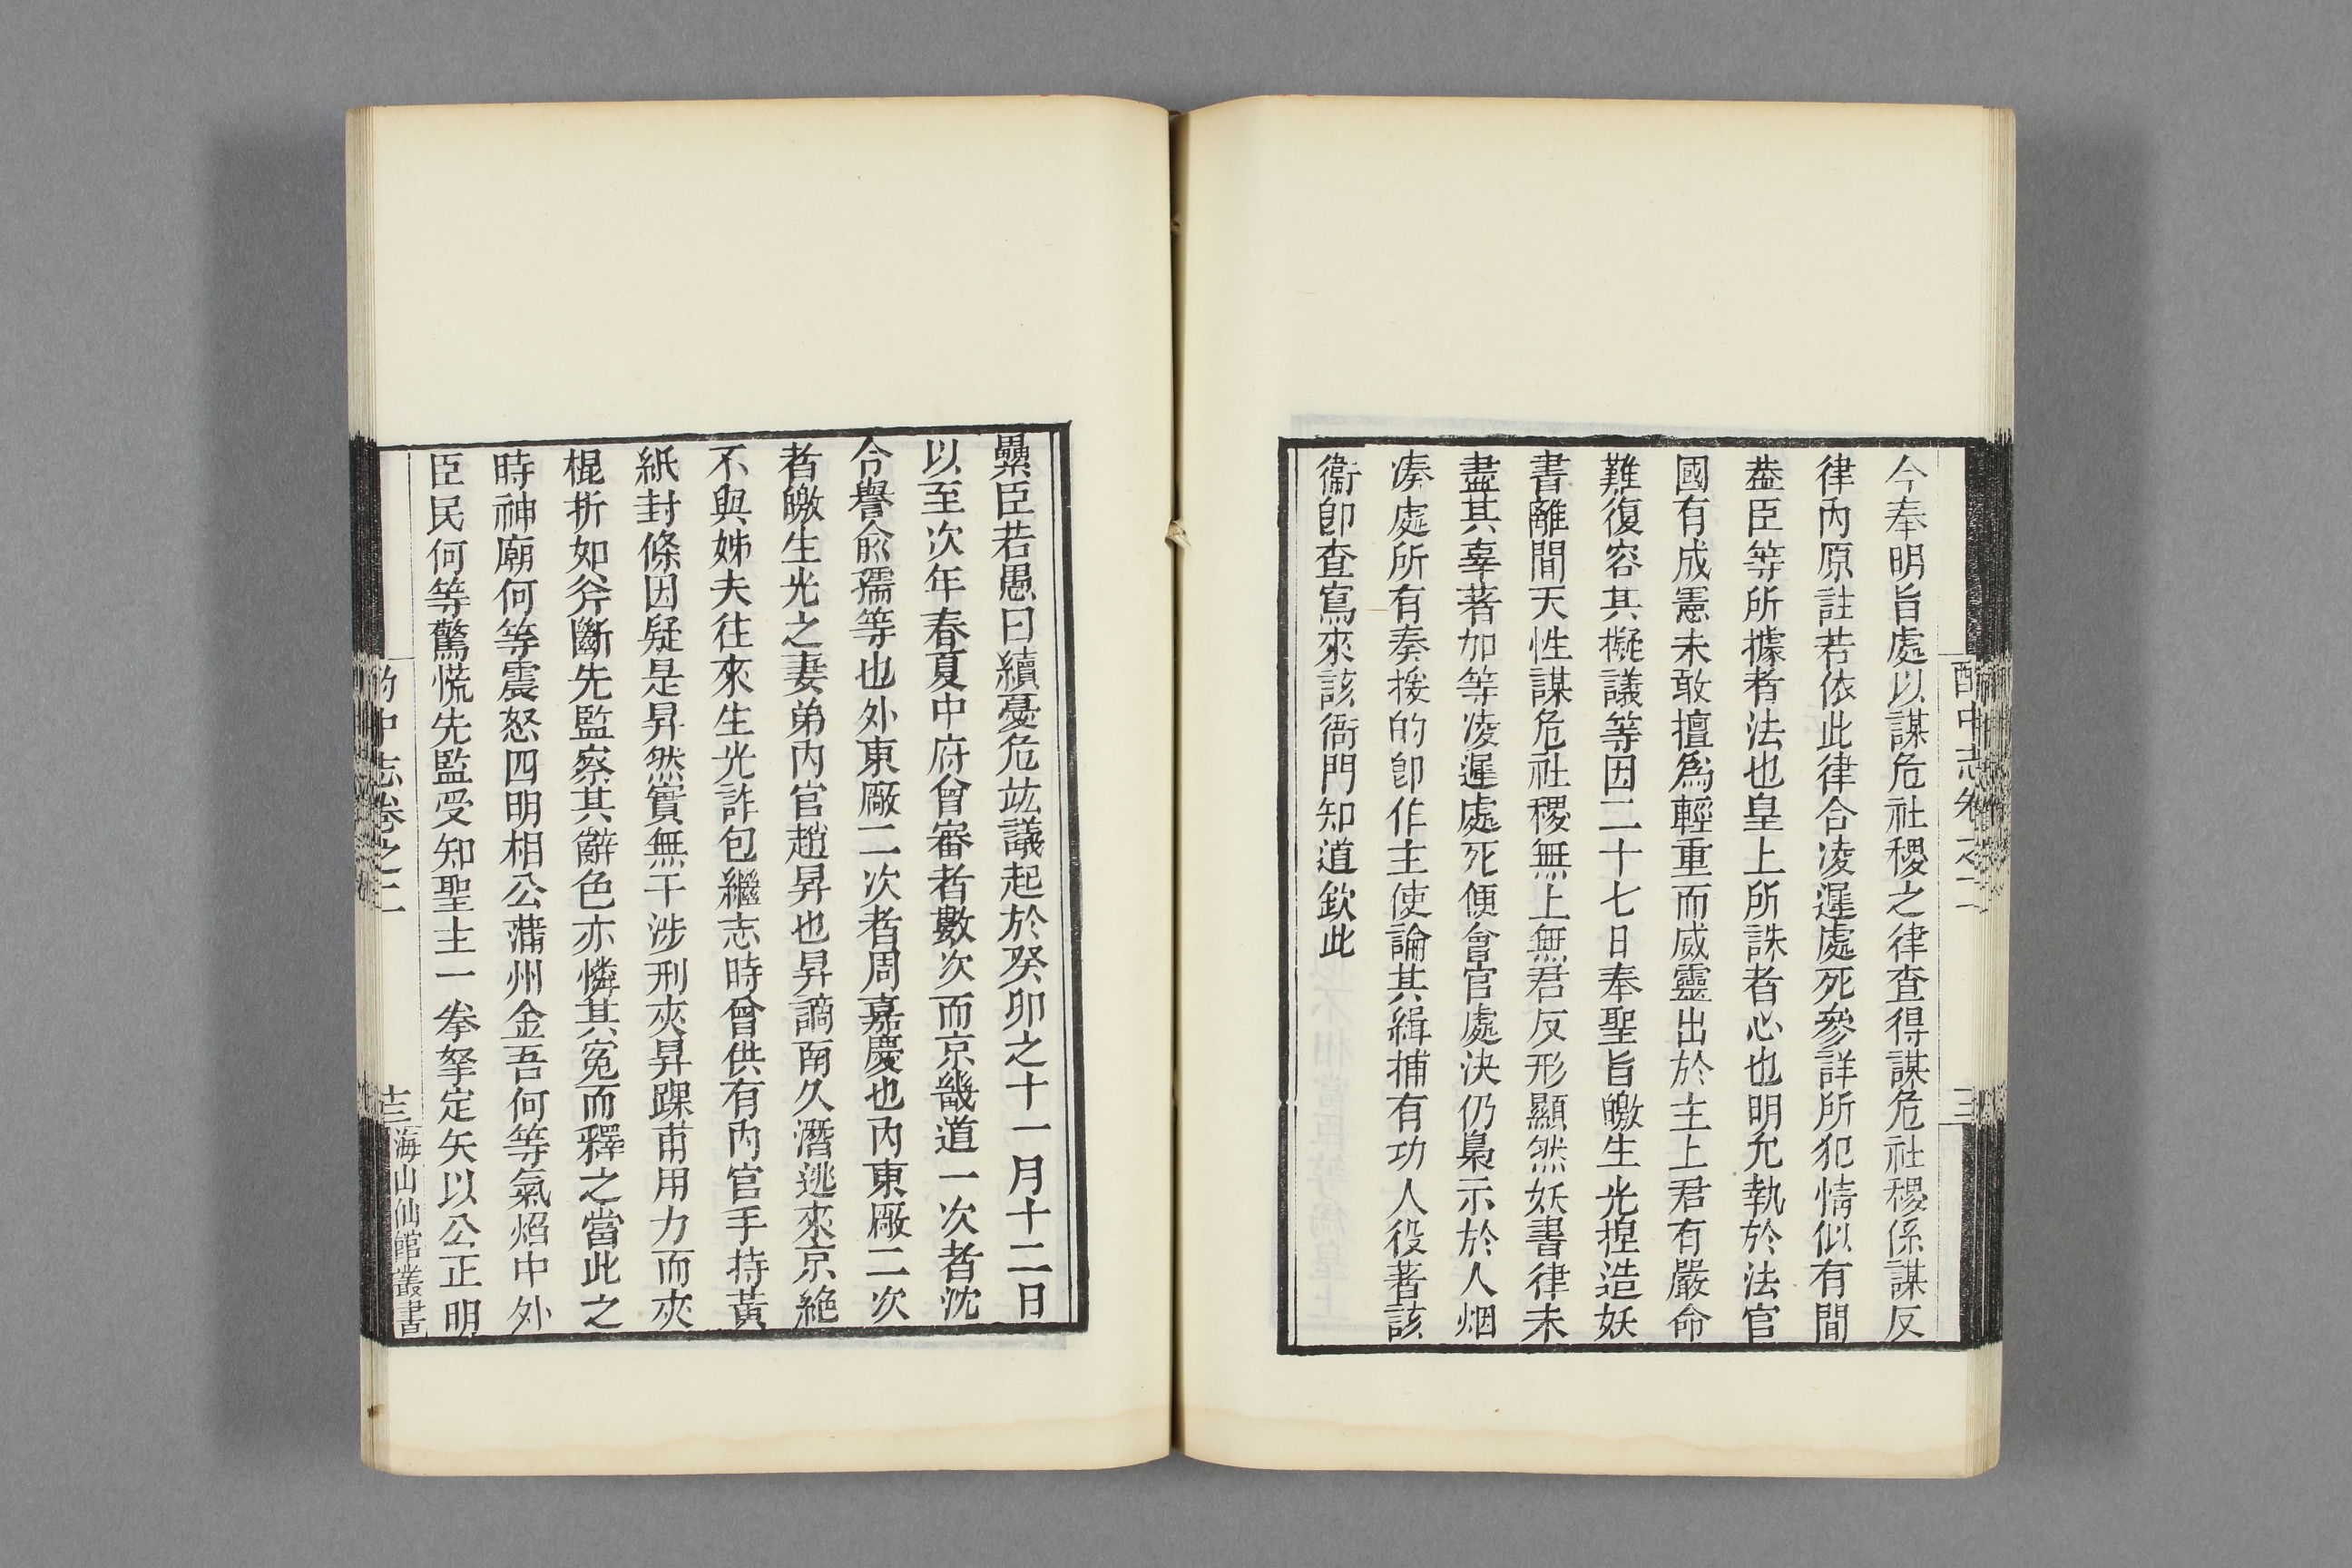 今奉明旨處以謀危社稷之律查得謀危社稷係謀反
律內原註若依此律合凌遲處死參詳所犯情似有間
葢臣等所據者法也皇上所誅者心也明允執於法官
國有成憲未敢擅爲輕重而威靈出於主上君有嚴命
難復容其擬議等因二十七日奉聖旨皦生光捏造妖
書離間天性謀危社稷無上無君反形顯然妖書律未
盡其辜著加等凌遲處死便會官處決仍梟示於人烟
湊處所有奏擾的卽作主使論其緝捕有功人役著該
衞卽查寫來該衙門知道欽此
酌中志卷之二
纍臣若愚曰續憂危竑議起於癸卯之十一月十二日
以至次年春夏中府會審者數次而京畿道一次者沈
令譽俞孺等也外東廠二次者周嘉慶也內東廠二次
者皦生光之妻弟內官趙昇也昇謫南久潛逃來京絶
不與姊夫往來生光詐包繼志時曾供有內官手持黃
紙封條因疑是昇然實無干涉刑夾昇踝甫用力而夾
棍折如斧斷先監察其辭色亦憐其冤而釋之當此之
時神廟何等震怒四明相公蒲州金吾何等氣焰中外
臣民何等驚慌先監受知聖主一拳拏定矢以公正明
酌中志卷之二
十三
海山仙館叢書